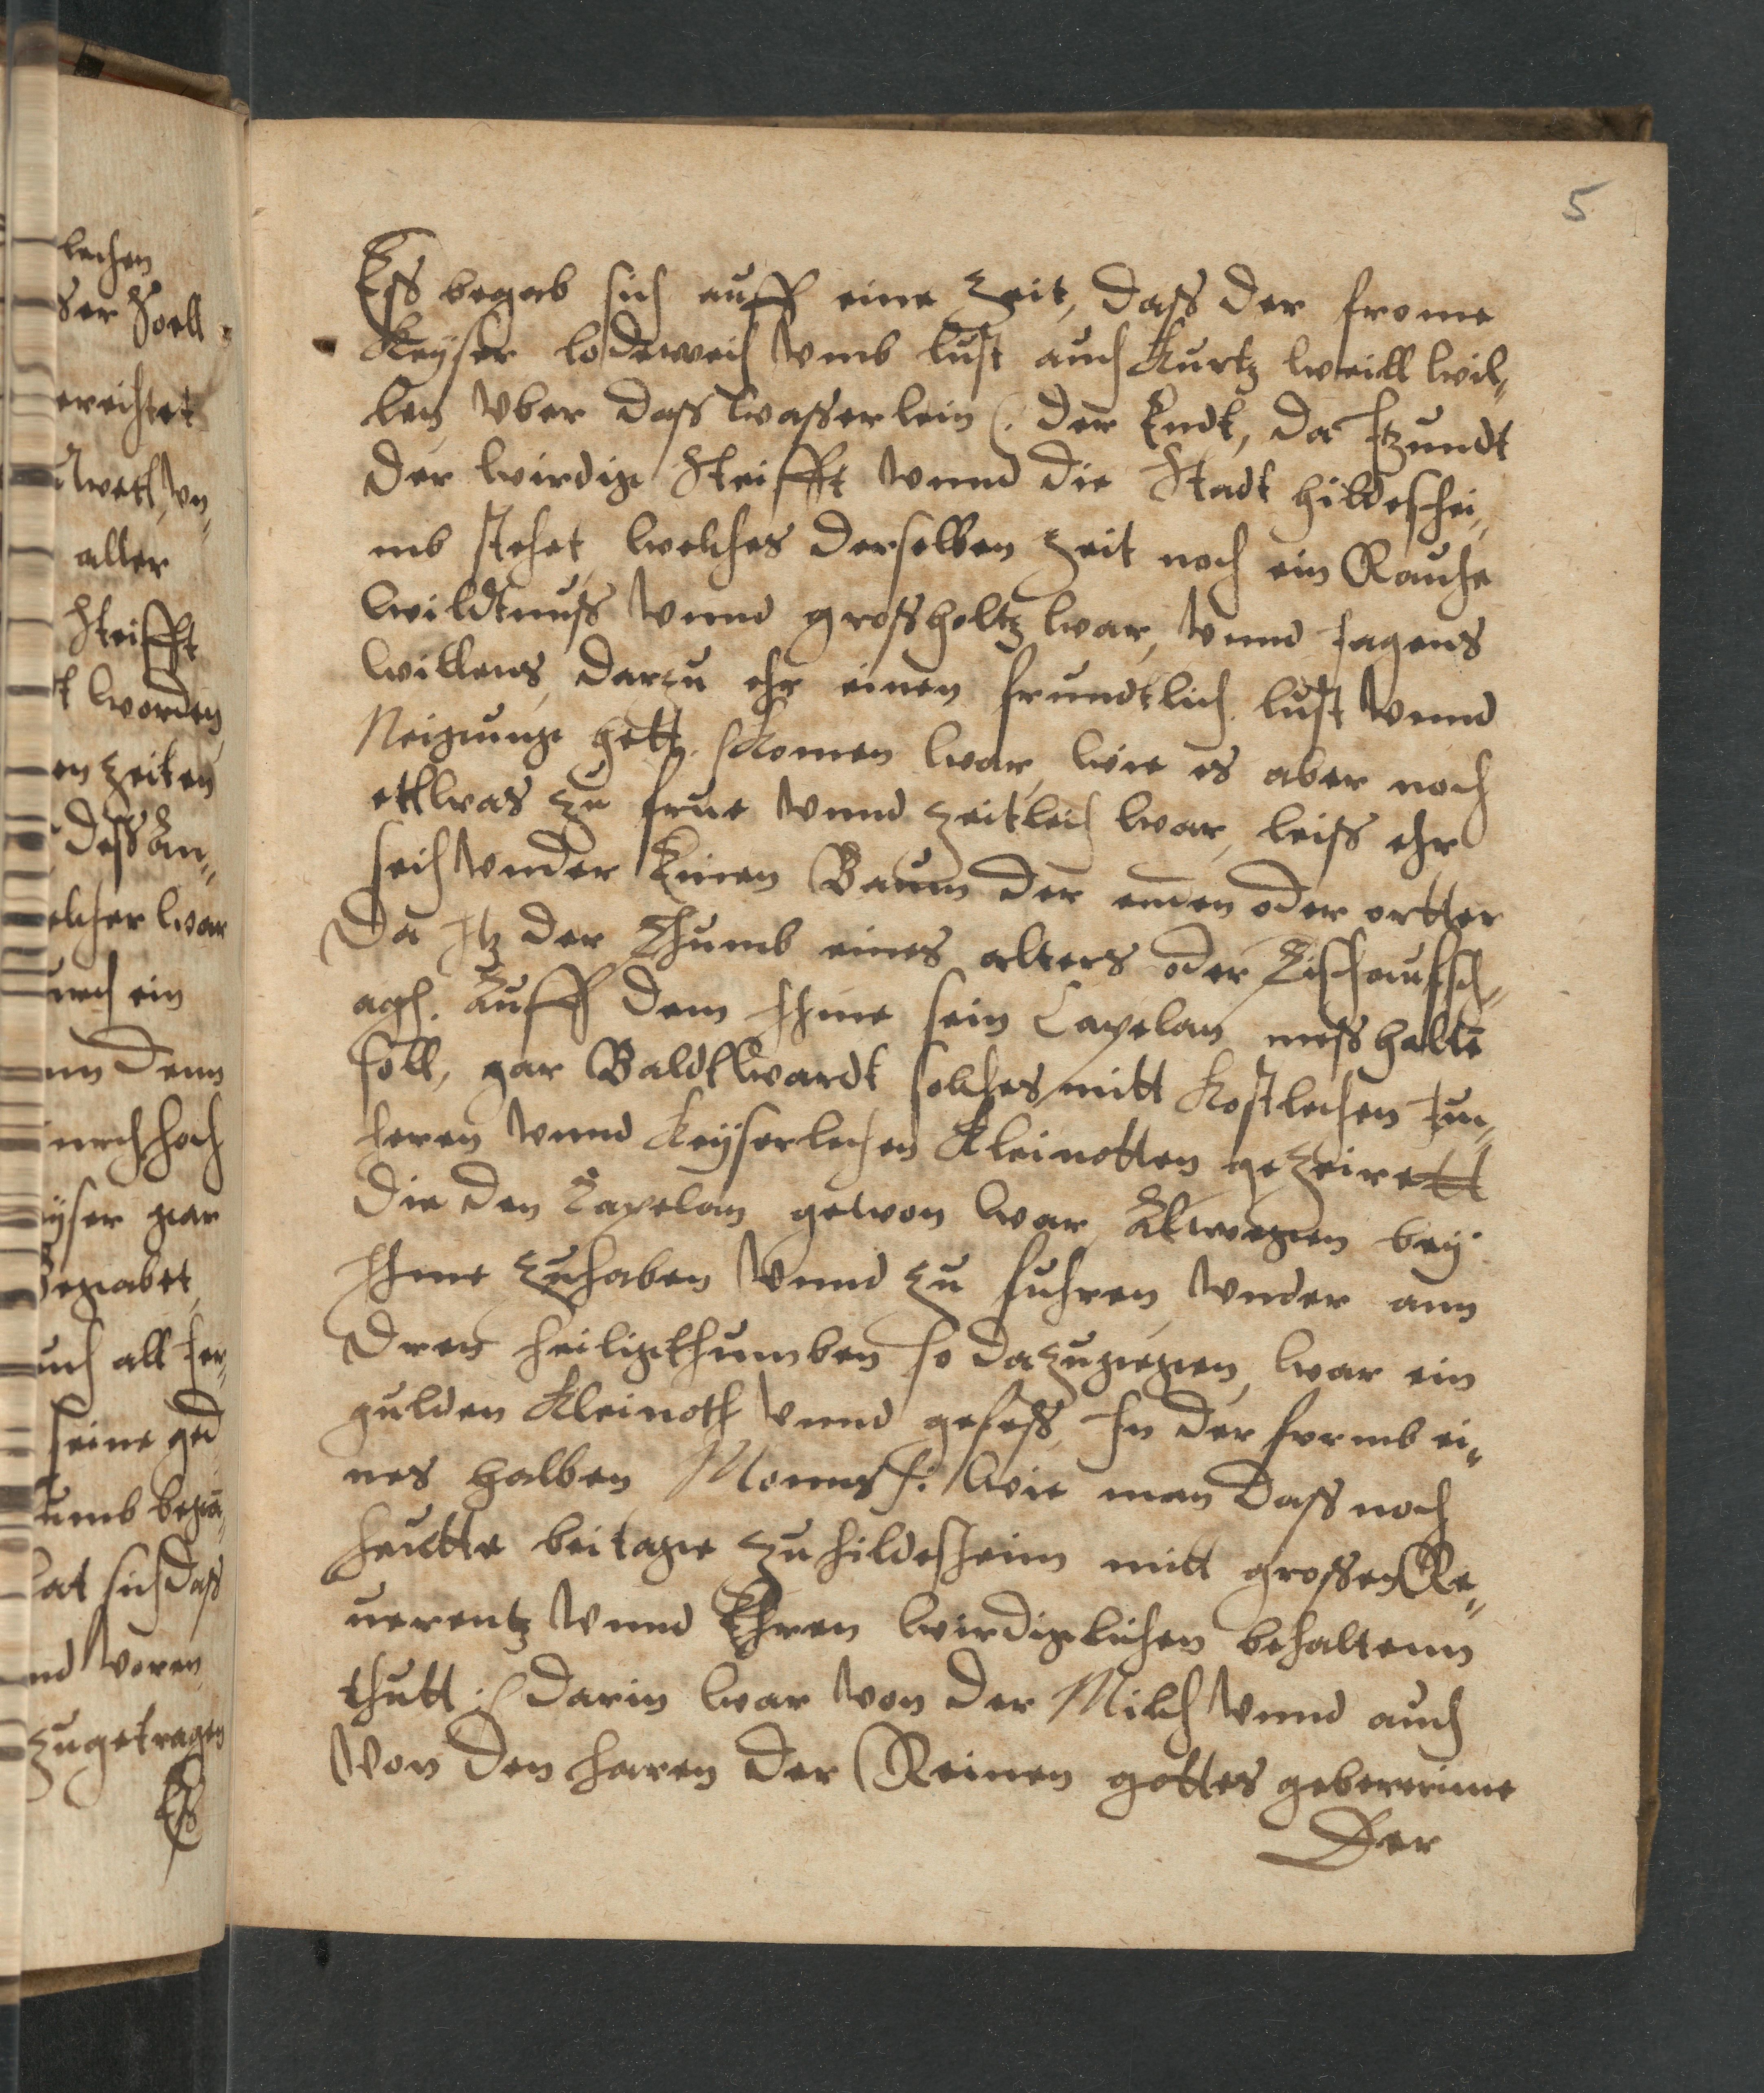 5
Ess begab sich auff eine Zeit, dass der frome
Keyser lodeweich vmb lust auch Kurtz weill wil„
len, vber dass wasserlein (: der Endt, da Itzundt
der wirdige Steifft vnnd die Stadt hildeschei„
mb stehet, welches derselben Zeit noch ein Rauche
wildtnuss vnnd grossholtz war, vnnd Jagens
willens, darzu ehr einen frundtlich lust vnnd
Neigunge hett. Komen war, wie es aber noch
ettwas zu frue vnnd zeitleich war, leiss ehr
seich vnder Einen Baum der enden oder ortter
Da Itz der Thumb eines alters oder Tisch
auff dem Ihme sein Capelan mess halte
soll, gar Baldt wardt solches mitt Kostlechen tu„
cheren vnnd Keyserlechen Kleinotten gezeirett
die den Capelan gewon war, Alwegen bey
Ihme zuhaben vnnd zu fuhren, vnder ann
dren heiligthumben so dazugegen, war ein
gulden Kleinoth vnnd gefess, In der formb ei„
nes halben Monns (: wie man dass noch
heutte beitage zu hildesheim mitt grossen Re„
uerentz vnnd Ehren wirdiglichen behaltenn
thutt :) darin war von der Milch vnnd auch
von den haren der Reinen gottes gebererinne
Der
lechen
ser Zoell
ereichtet
aller
Steifft
worden
en zeiten
dess An„
elcher war
urch ein
nn denn
urch hoch
yser gar
Begabet
uch all
seine
umb
hat sich dass
nd voren
zugetragen
Ess